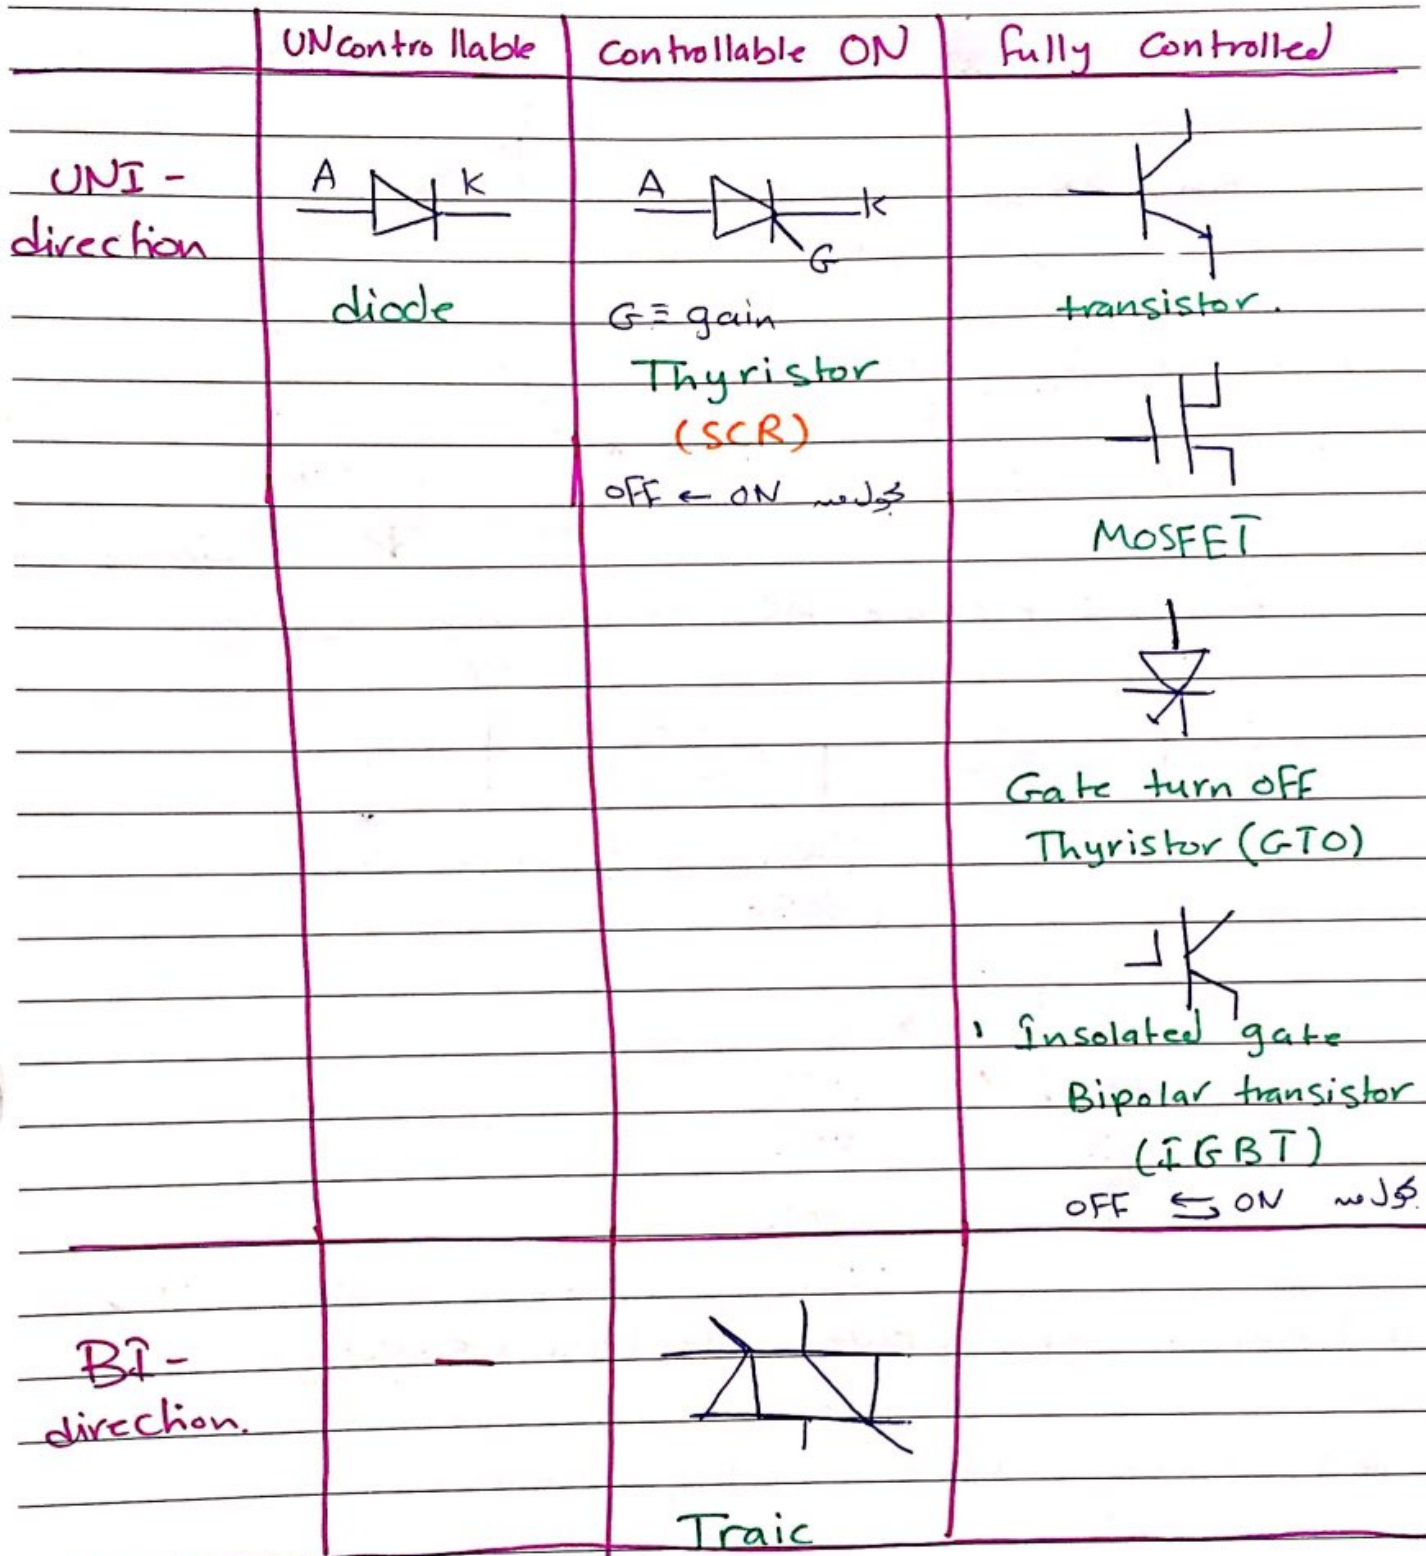 UNcontrollable
Controllable ON
fully Controlled
UNI-
direction
A
K
diode
A
K
G
G ≡ gain
Thyristor
(SCR)
OFF ← ON
transistor.
MOSFET
Gate turn OFF
Thyristor (GTO)
Insolated gate
Bipolar transistor
(IGBT)
OFF ⇆ ON
BI-
direction.
—
Traic